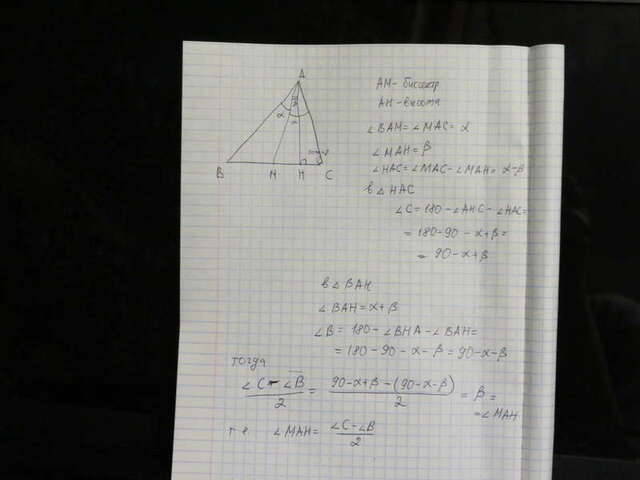 A
α
B
M
H
C
AM - биссектр
AH - высота
∠BAM = ∠MAC = α
∠MAH = β
∠HAC = ∠MAC - ∠MAH = α-β
в △HAC
∠C = 180 - ∠AHC - ∠HAC =
= 180 - 90 - α + β =
= 90 - α + β
в △BAH
∠BAH = α + β
∠B = 180 - ∠BHA - ∠BAH =
= 180 - 90 - α - β = 90 - α - β
тогда
(∠C - ∠B)/2 = (90 - α + β - (90 - α - β))/2 = β =
= ∠MAH
т.е. ∠MAH = (∠C - ∠B)/2